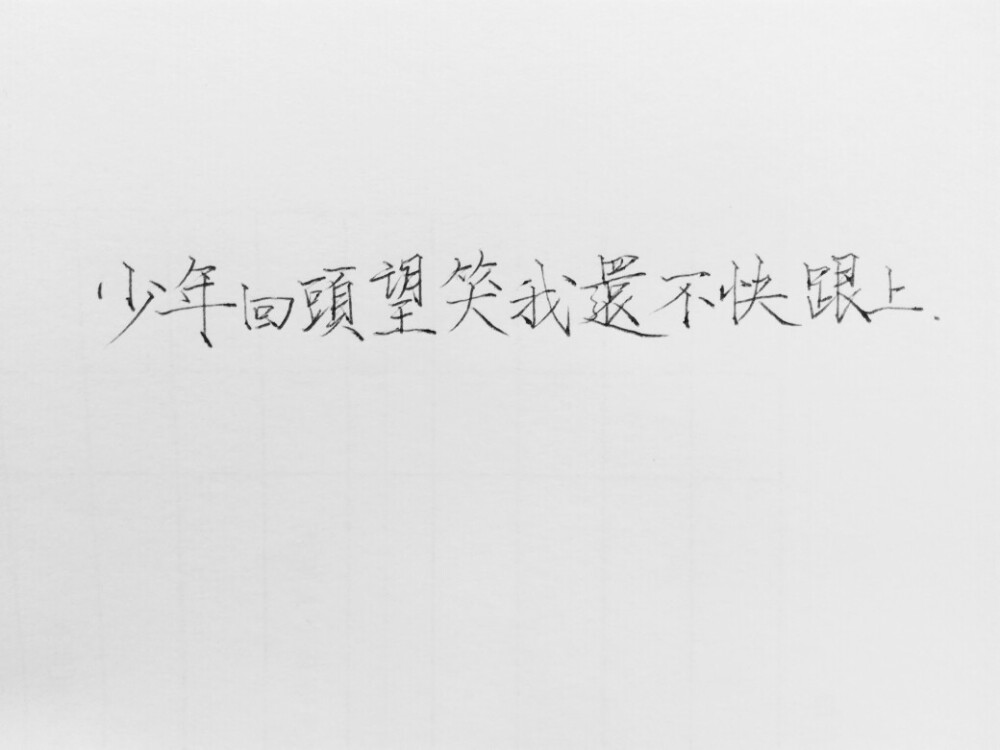 少年回頭望笑我還不快跟上.